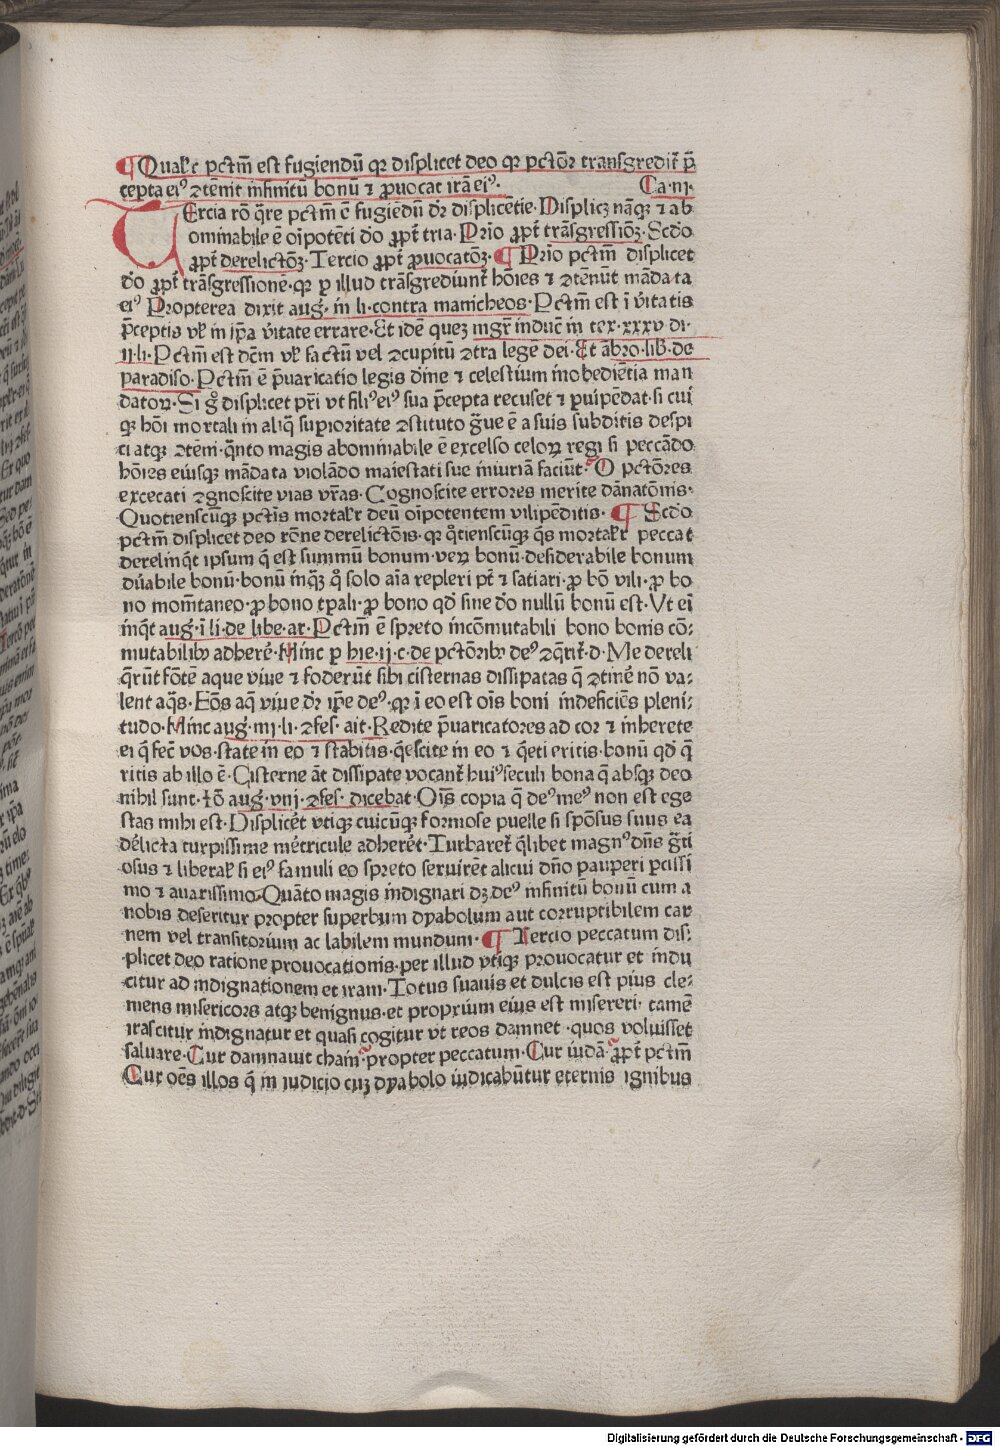 ¶ Qualr̄ pctm̄ est fugiendū qꝛ displicet deo qꝛ pctōꝝ transgredit̄ p̄
cepta eiꝰ ꝯtēnit infinitū bonū ⁊ ꝓuocat irā eiꝰ. Ca. iij.
TErcia rō q̄re pctm̄ ē fugiēdū dr̄ displicētie. Displicꝫ nāqꝫ ⁊ ab
ominabile ē oīpotēti dō ꝓpt̄ tria. Prīo ꝓpt̄ trāsgressiōꝫ. Scdo
ꝓpt̄ derelictōꝫ. Tercio ꝓpt̄ ꝓuocatōꝫ. ¶ Prīo pctm̄ displicet
dō ꝓpt̄ trāsgressionē. qꝛ ꝑ illud trāsgrediunt̄ hōies ⁊ ꝯtēnūt mādata
eiꝰ Propterea dixit aug. in li. contra manicheos. Pctm̄ est ī v̄itatis
p̄ceptis vl̄ in ip̄a v̄itate errare. Et idē queꝫ mgr̄ inducit in tex. xxxv di.
ij. li. Pctm̄ est dc̄m vl̄ factū vel ꝯcupitū ꝯtra legē dei. Et ābro. lib. de
paradiso. Pctm̄ ē p̄uaricatio legis diuīe ⁊ celestium inobediētia man
datoꝝ. Si g̊ displicet pr̄i vt filiꝰ eiꝰ sua p̄cepta recuset ⁊ ꝑuipēdat. si cui
qꝫ hōi mortali in aliq̄ suꝑioritate ꝯstituto ḡue ē a suis subditis despi
ci atqꝫ ꝯtēni. q̄nto magis abominabile ē excelso celoꝝ regi si peccādo
hōies eiusqꝫ mādata violādo maiestati sue iniuriā faciūt. O pctōres
excecati ꝯgnoscite vias vr̄as. Cognoscite errores merite dānatōnis.
Quotienscūqꝫ pctis mortalr̄ deū oīpotentem vilipēditis. ¶ Scdo
pctm̄ displicet deo rōne derelictōis. qꝛ q̊tienscūqꝫ q̄s mortalr̄ peccat
derelinq̄t ipsum q̄ est summū bonum. veꝝ bonū. desiderabile bonum
durabile bonū. bonū inq̄ꝫ q̊ solo aīa repleri pt̄ ⁊ satiari. ꝓ bō vili. ꝓ bo
no mom̄taneo. ꝓ bono tꝑali. ꝓ bono qd̄ sine dō nullū bonū est. Vt ei
inq̄t aug. ī li. de libe. ar. Pctm̄ ē spreto incōmutabili bono bonis cō⸗
mutabilibꝰ adherē. Hinc ꝑ hie. ij. c. de pctōribꝰ deꝰ ꝯq̄rit̄. d. Me dereli
q̄rūt fōtē aque viue ⁊ foderūt sibi cisternas dissipatas q̄ ꝯtinē nō va⸗
lent aq̄s. Fōs aq̄ viue dr̄ ip̄e deꝰ. qꝛ ī eo est oīs boni indeficiēs pleni⸗
tudo. Hinc aug. iiij. li. ꝯfes. ait. Redite p̄uaricatores ad cor ⁊ inherete
ei q̄ fec̄ vos. state in eo ⁊ stabitis. q̄escite in eo ⁊ q̄eti eritis. bonū qd̄ q̄
ritis ab illo ē. Cisterne āt dissipate vocant̄ huiꝰ seculi bona q̄ absqꝫ deo
nihil sunt. Iō aug. viij. ꝯfes. dicebat. Oīs copia q̄ deꝰ meꝰ non est ege
stas mihi est. Displicēt vtiqꝫ cuicūqꝫ formose puelle si spōsus suus ea
dēlicta turpissime mētricule adherēt. Turbaret̄ q̄libet magnꝰ dn̄s ḡti
osus ⁊ liberal̄ si eiꝰ famuli eo spreto seruirēt alicui dn̄o pauperi ꝑcissi
mo ⁊ auarissimo. Quāto magis indignari dꝫ deꝰ infinitū bonū cum a
nobis deseritur propter superbum dyabolum aut corruptibilem car
nem vel transitorium ac labilem mundum. ¶ Tercio peccatum dis⸗
plicet deo ratione prouocationis. per illud vtiqꝫ prouocatur et indu
citur ad indignationem et iram. Totus suauis et dulcis est pius cle⸗
mens misericors atqꝫ benignus. et proprium eius est misereri. tamē
irascitur indignatur et quasi cogitur vt reos damnet. quos voluisset
saluare. Cur damnauit cham. propter peccatum. Cur iudā. ꝓpt̄ pctm̄
Cur oēs illos q̄ in iudicio cuꝫ dyabolo iudicabūtur eternis ignibus
Digitalisierung gefördert durch die Deutsche Forschungsgemeinschaft - DFG